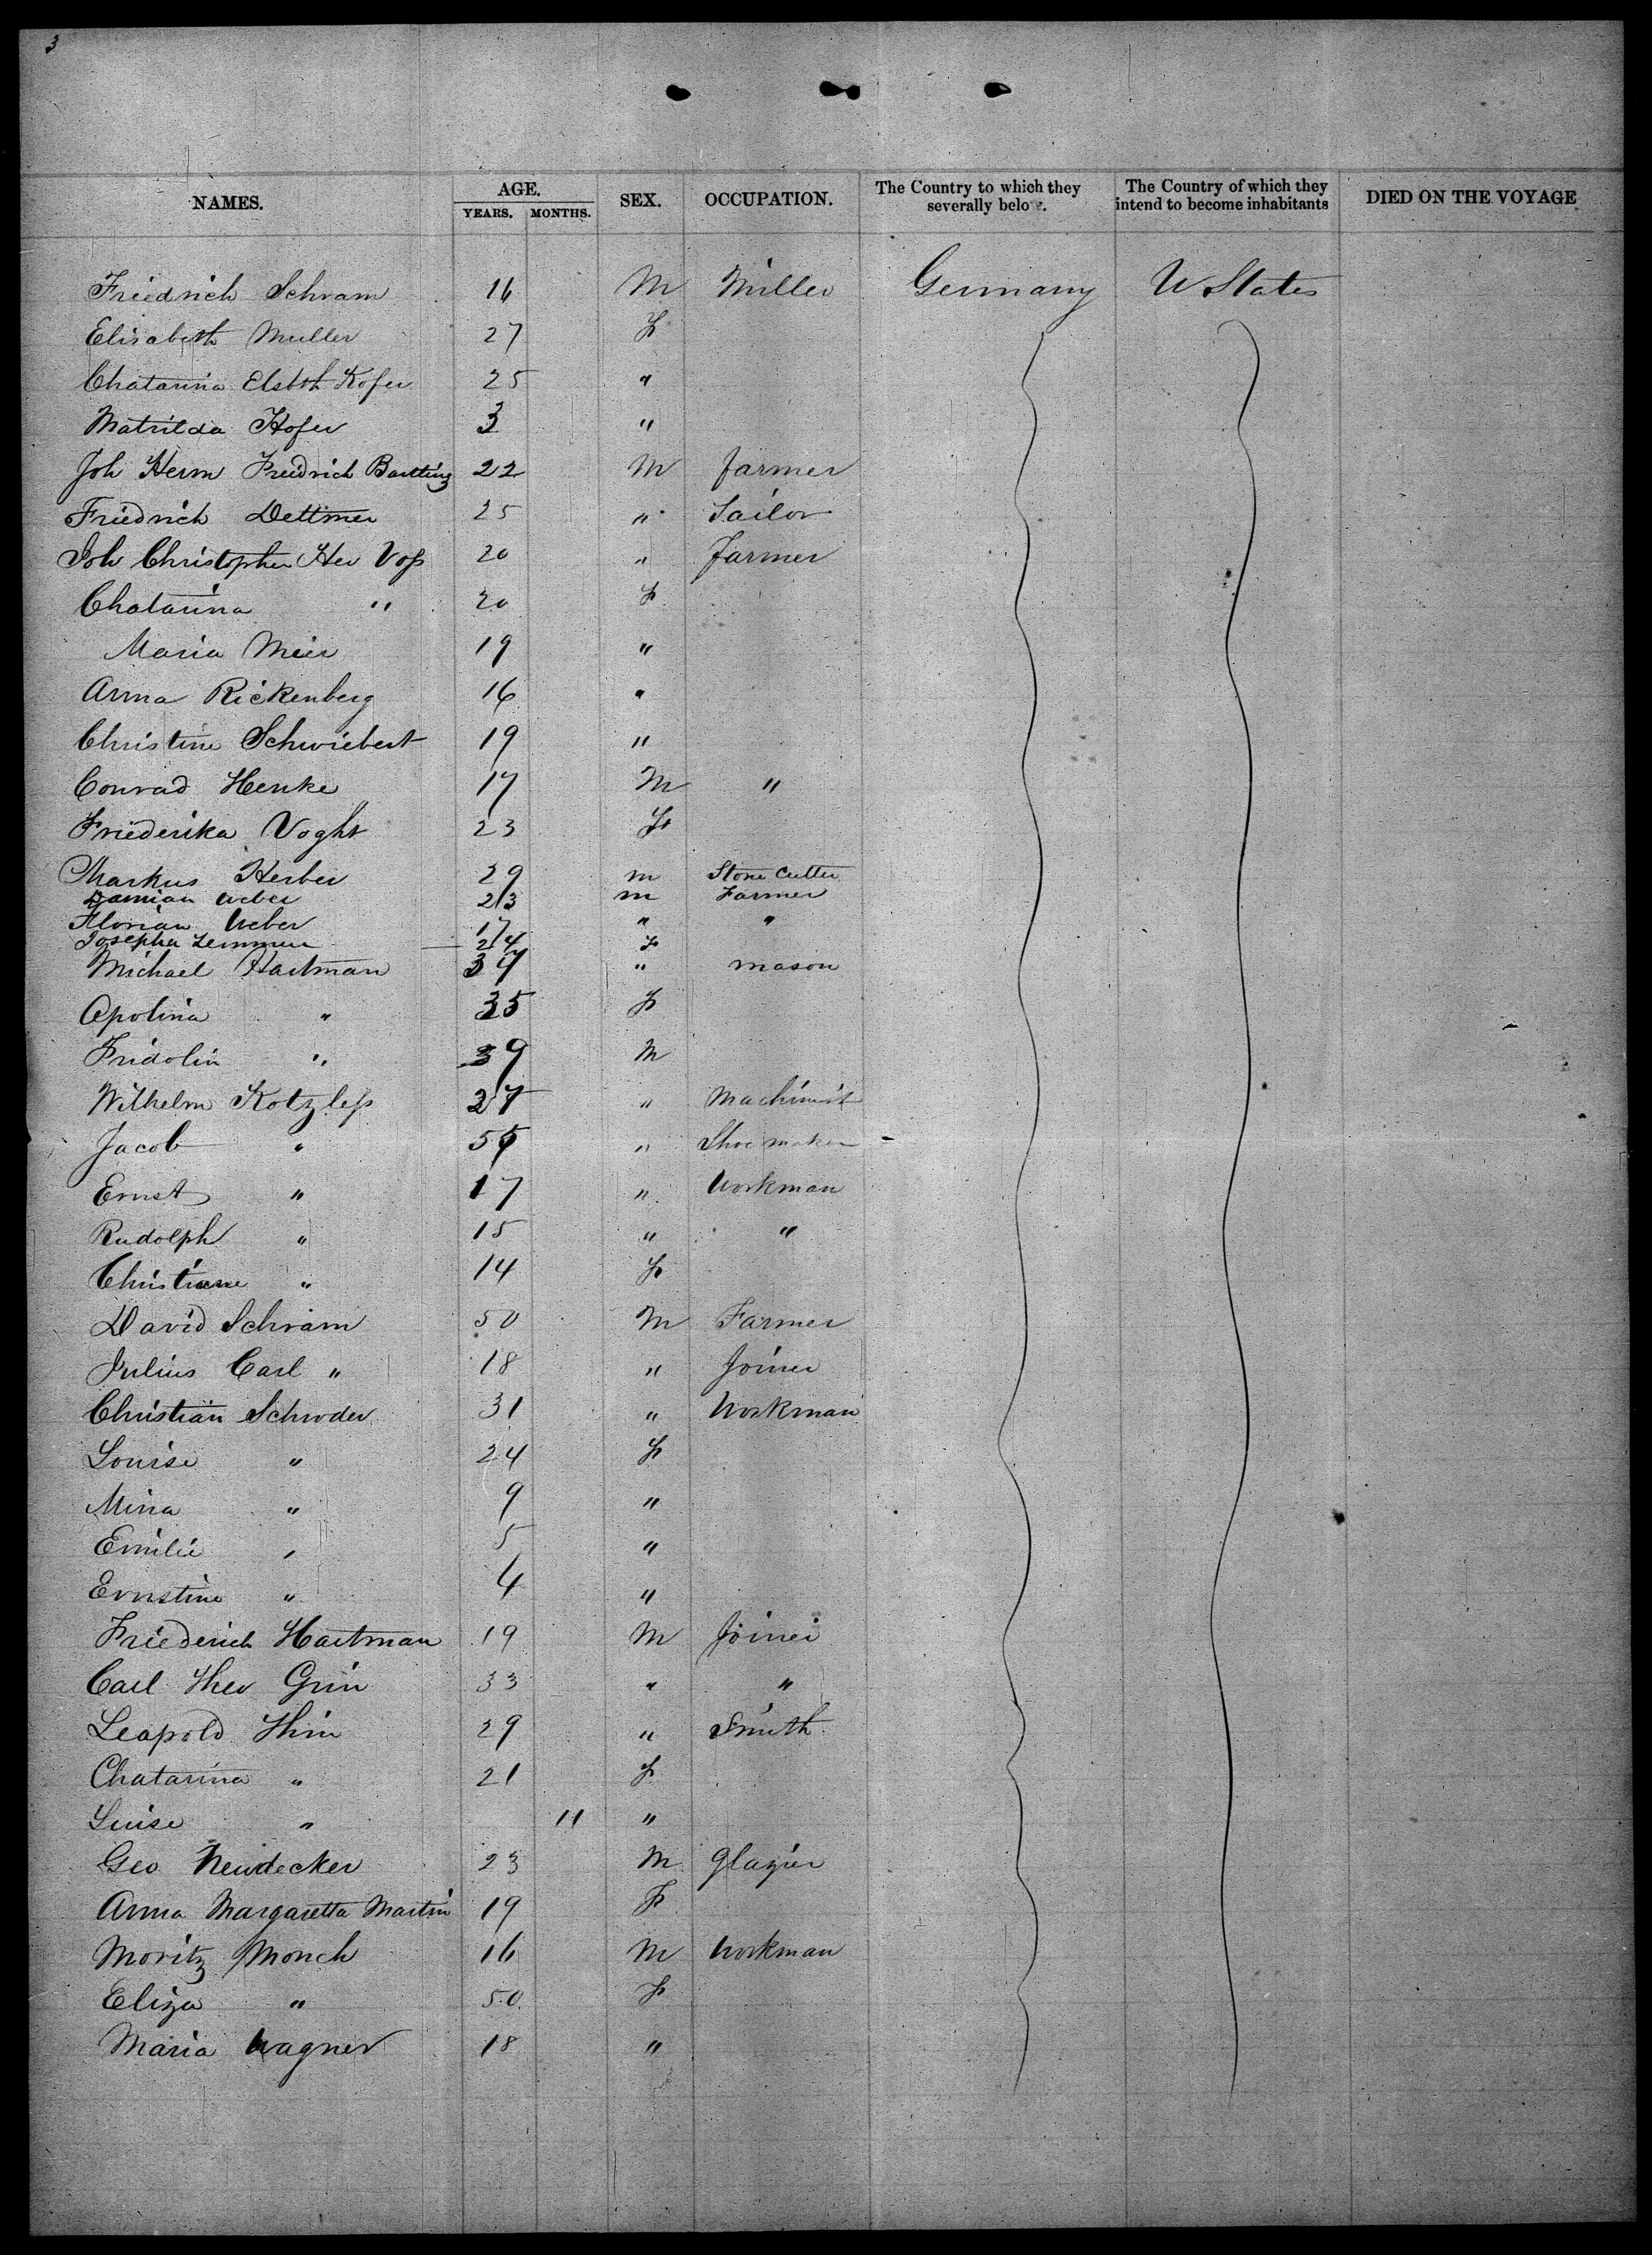 3
NAMES. AGE. YEARS. MONTHS. SEX. OCCUPATION. The Country to which they severally belo . The Country of which they intend to become inhabitants DIED ON THE VOYAGE
Friedrich Schram 16 M Miller Germany U States
Elisabeth Muller 27 F
Chatarina Elsbth Kofer 25 "
Matrilda Hofer 3 "
Joh Herm Freidrich Bartting 22 M farmer
Friedrich Dettmer 25 " Sailor
Joh Christopher Her Voss 20 " Farmer
Chatarina " 20 F
Maria Meir 19 "
Anna Rickenberg 16 "
Christine Schwiebert 19 "
Conrad Henke 17 M "
Friederika Voght 23 F
Markus Herber 29 m Stone Cutter
Damian Weber 23 m Farmer
Florian Weber 17 " "
Josepha Lemmen 24 F
Michael Hartman 37 " mason
Apolina " 35 F
Fridolin " 39 M
Wilhelm Kotzless 27 " Machinist
Jacob " 55 " Shoe maker
Ernst " 17 " Workman
Rudolph " 15 " "
Christiane " 14 F
David Schram 50 M Farmer
Julius Carl " 18 " Joiner
Christian Schroder 31 " Workman
Louise " 24 F
Mina " 9 "
Emilie " 5 "
Ernstine " 4 "
Friederich Hartman 19 M Joiner
Carl Theo Grin 33 " "
Leapold Him 29 " Smith
Chatarina " 21 F
Luise " 11 "
Geo Neudecker 23 M glazier
Anna Margaretta Martin 19 F
Moritz Monch 16 M Workman
Eliza " 50 F
Maria Wagner 18 "